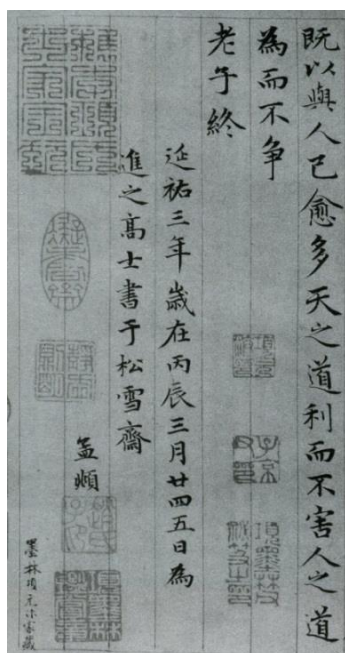 既以與人己愈多天之道利而不害人之道
為而不爭
老子終
延祐三年歲在丙辰三月廿四五日為
進之高士書于松雪齋
孟頫
墨林項元汴家藏